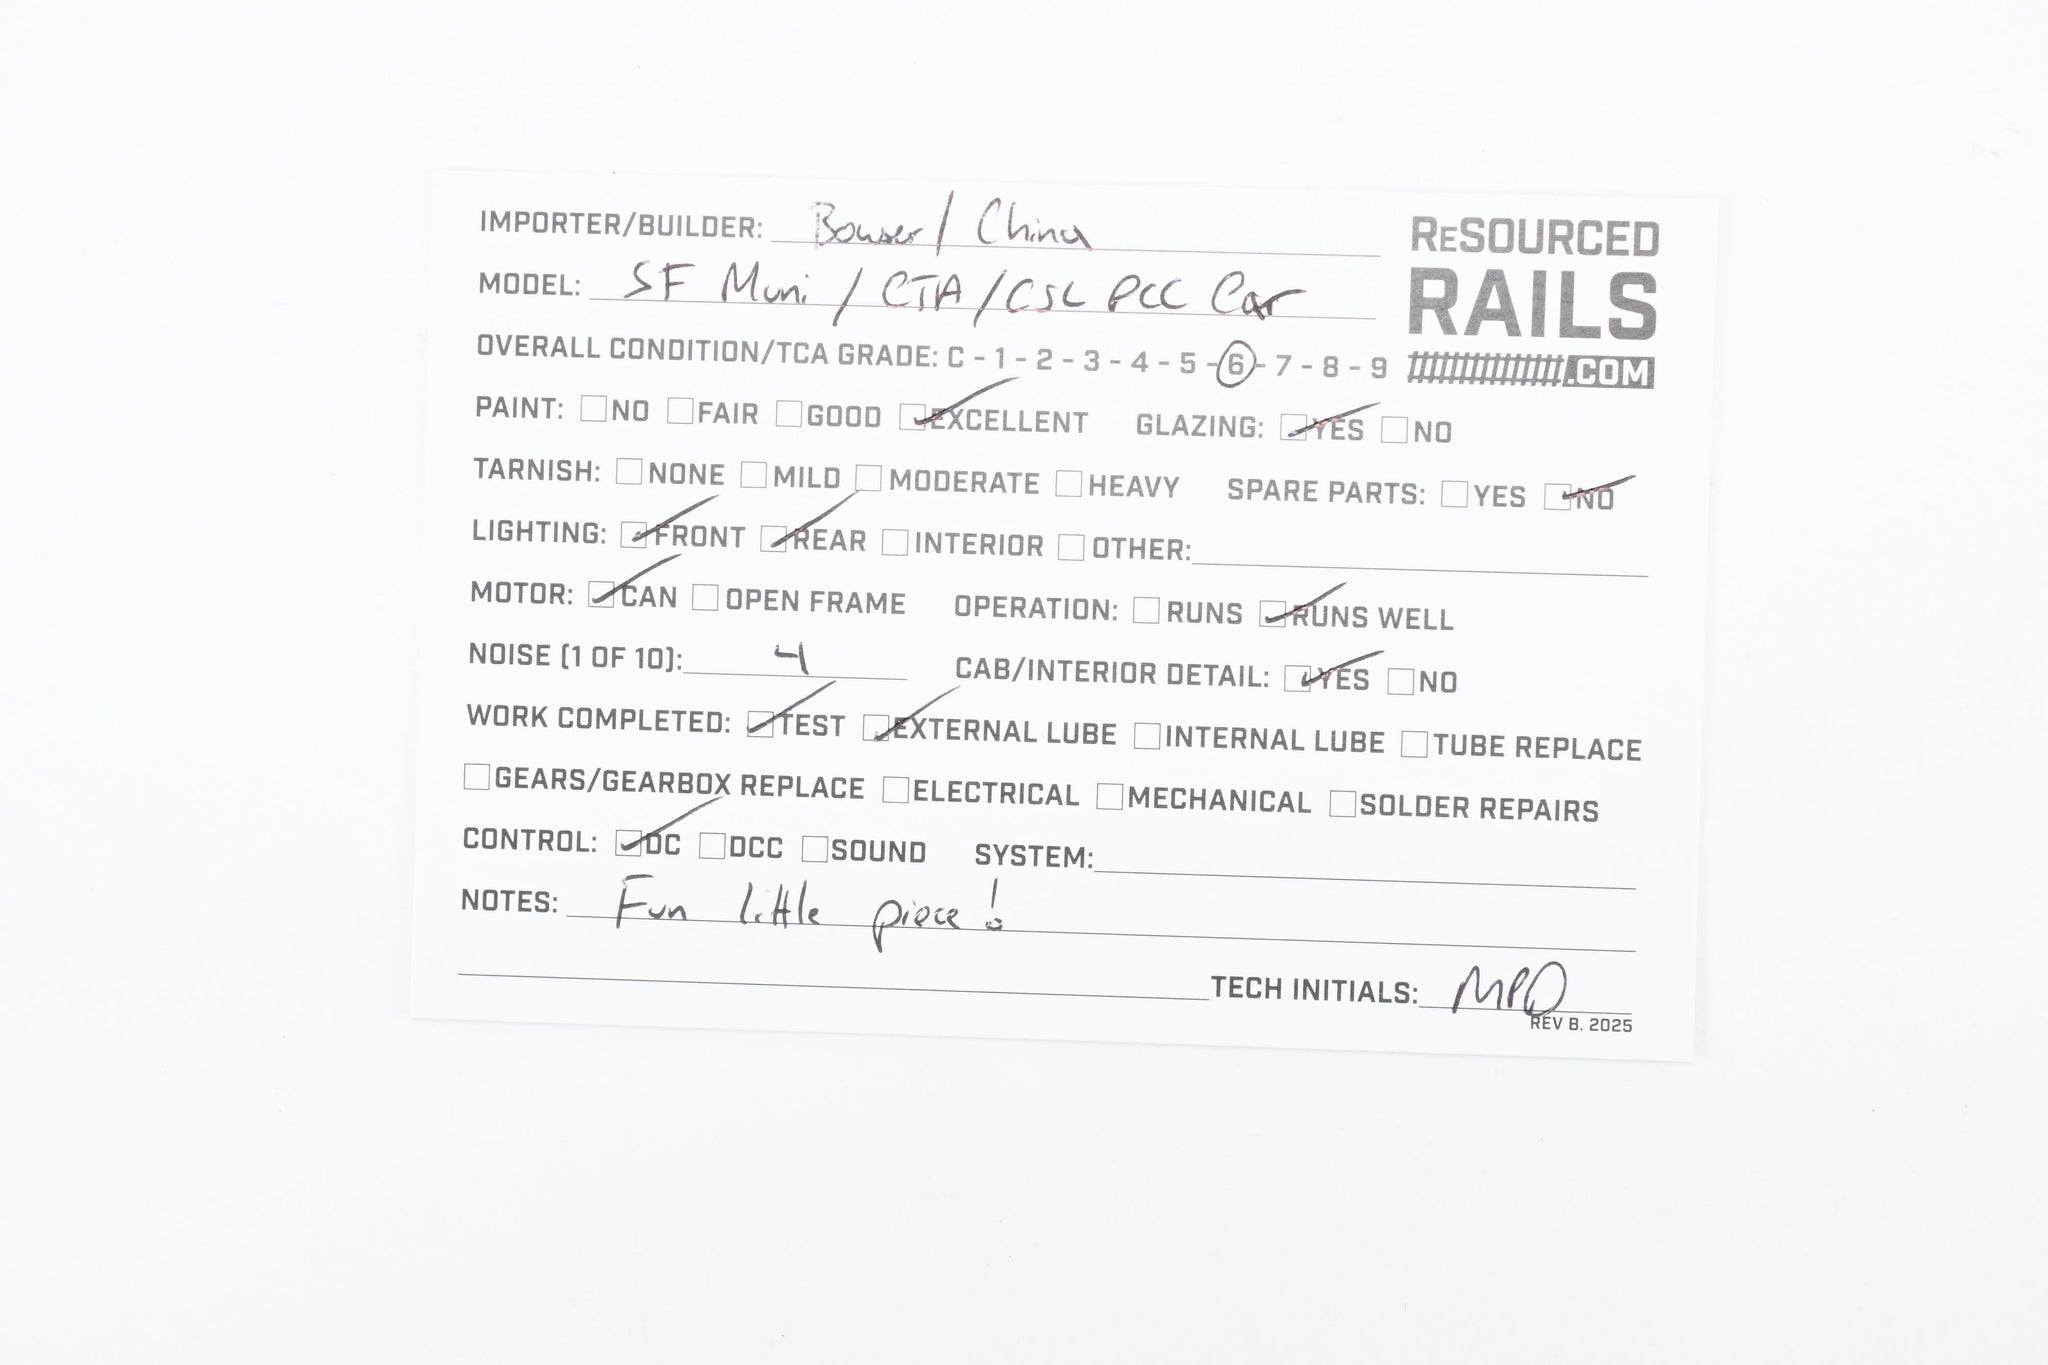 IMPORTER/BUILDER: Bowser / China
MODEL: SF Muni / CTA / CSL PCC Car
ReSOURCED
RAILS
.COM
OVERALL CONDITION/TCA GRADE: C - 1 - 2 - 3 - 4 - 5 - 6 - 7 - 8 - 9
PAINT: NO FAIR GOOD EXCELLENT GLAZING: YES NO
TARNISH: NONE MILD MODERATE HEAVY SPARE PARTS: YES NO
LIGHTING: FRONT REAR INTERIOR OTHER:
MOTOR: CAN OPEN FRAME OPERATION: RUNS RUNS WELL
NOISE (1 OF 10): 4 CAB/INTERIOR DETAIL: YES NO
WORK COMPLETED: TEST EXTERNAL LUBE INTERNAL LUBE TUBE REPLACE
GEARS/GEARBOX REPLACE ELECTRICAL MECHANICAL SOLDER REPAIRS
CONTROL: DC DCC SOUND SYSTEM:
NOTES: Fun little piece!
TECH INITIALS: MPD
REV B. 2025